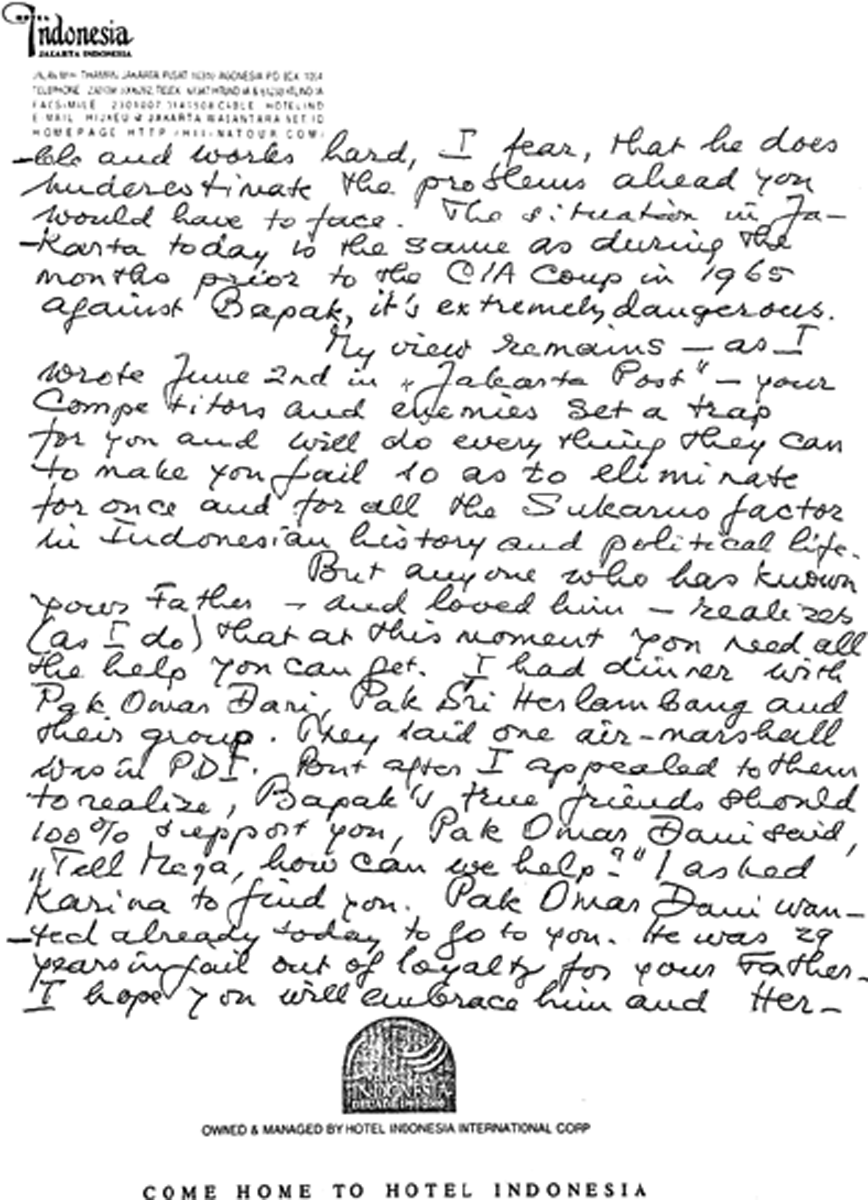 HOTEL
Indonesia
JAKARTA INDONESIA
THAMRIN, JAKARTA PUSAT
HOMEPAGE HTTP
-ble and works hard, I fear, that he does
underestimate the problems ahead you
would have to face. The situation in Ja-
-karta today is the same as during the
months prior to the CIA Coup in 1965
against Bapak, it's extremely dangerous.
My view remains – as I
wrote June 2nd in „Jakarta Post" – your
Competitors and enemies set a trap
for you and will do every thing they can
to make you fail so as to eliminate
for once and for all the Sukarno factor
in Indonesian history and political life.
But anyone who has known
your Father – and loved him – realizes
(as I do) that at this moment you need all
the help you can get. I had dinner with
Pak Omar Dani, Pak Sri Herlambang and
their group. They said one air-marshall
was in PDI. But after I appealed to them
to realize, Bapak's true friends should
100% support you, Pak Omar Dani said,
„Tell Mega, how can we help?" I asked
Karina to find you. Pak Omar Dani wan-
-ted already today to go to you. He was 29
years in jail out of loyalty for your Father.
I hope you will embrace him and Her-
INDONESIA
OWNED & MANAGED BY HOTEL INDONESIA INTERNATIONAL CORP
COME HOME TO HOTEL INDONESIA